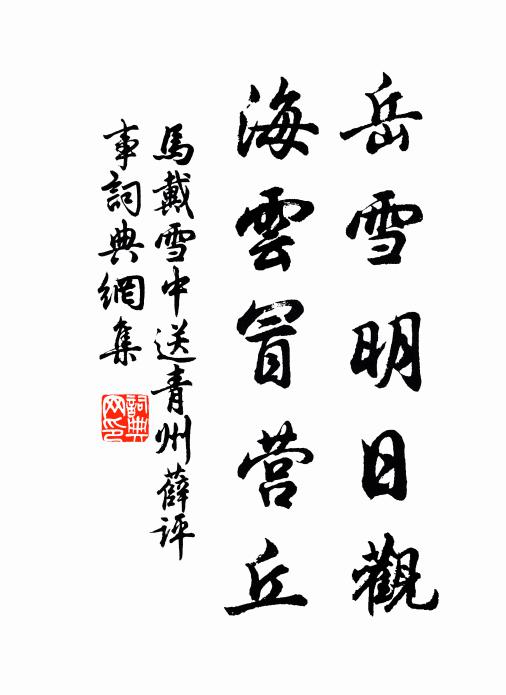 岳雪明日觀
海雲冒营丘
馬戴雪中送青州薛评
事詞典網集
詞典
网印